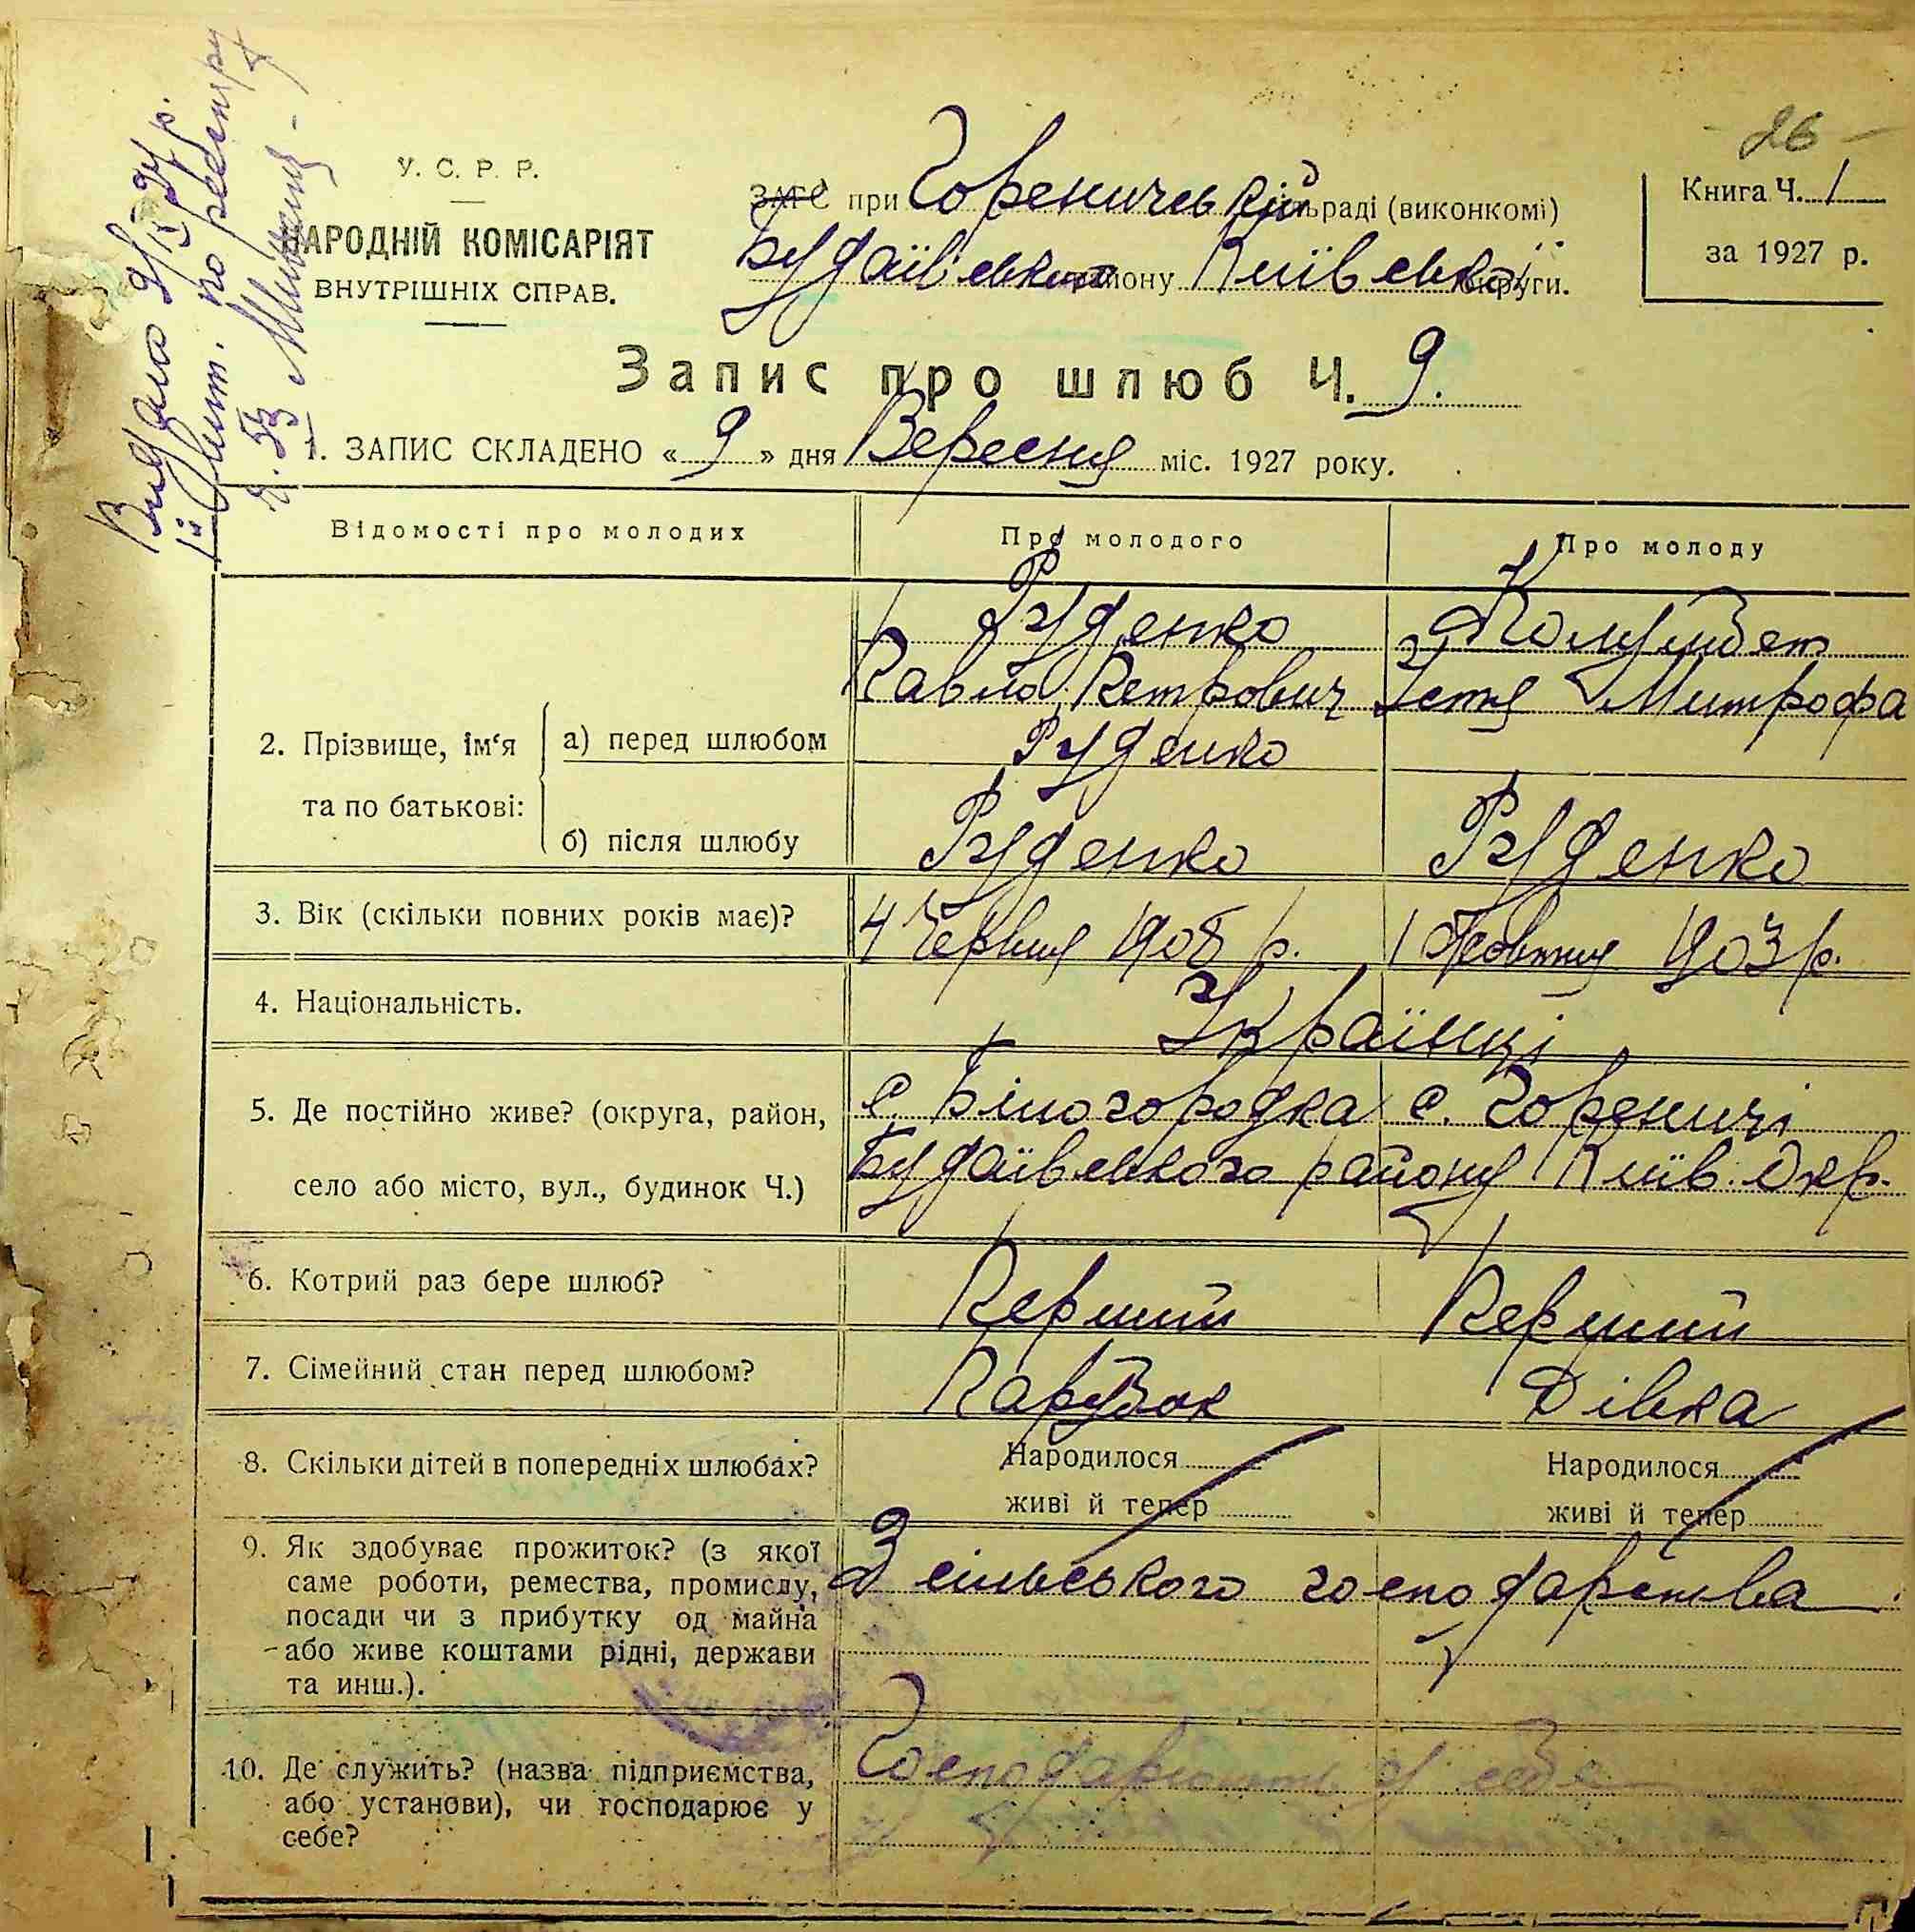 - 26 -
У. С. Р. Р.
НАРОДНІЙ КОМІСАРІЯТ
ВНУТРІШНІХ СПРАВ.
ЗАГС при Гореничській сільраді (виконкомі)
Будаївського району Київської округи.
Книга Ч. 1
за 1927 р.
Видана
Запис про шлюб Ч. 9.
1. ЗАПИС СКЛАДЕНО « 9 » дня Вересня міс. 1927 року.
Відомості про молодих
Про молодого
Про молоду
2. Прізвище, ім'я та по батькові:
а) перед шлюбом
Руденко
Павло Петрович
Руденко
Устя Митрофа
б) після шлюбу
Руденко
Руденко
3. Вік (скільки повних років має)?
4 Червня 1908 р.
1 Жовтня 1903 р.
4. Національність.
Українці
5. Де постійно живе? (округа, район,
село або місто, вул., будинок Ч.)
с. Білогородка
с. Гореничі
Будаївського району Київ. Окр.
6. Котрий раз бере шлюб?
Перший
Перший
7. Сімейний стан перед шлюбом?
Парубок
Дівка
8. Скільки дітей в попередніх шлюбах?
Народилося
живі й тепер
Народилося
живі й тепер
9. Як здобуває прожиток? (з якої
саме роботи, ремества, промислу,
посади чи з прибутку од майна
або живе коштами рідні, держави
та инш.).
З сільського господарства
10. Де служить? (назва підприємства,
або установи), чи господарює у
себе?
Господарюють у себе